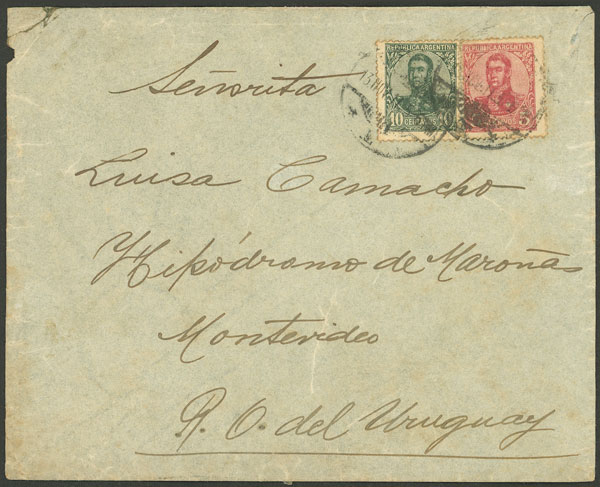 REPUBLICA ARGENTINA REPUBLICA ARGENTINA
10 CENTAVOS 10 5
Señorita
Luisa Camacho
Hipódromo de Maroñas
Montevideo
R. O. del Uruguay